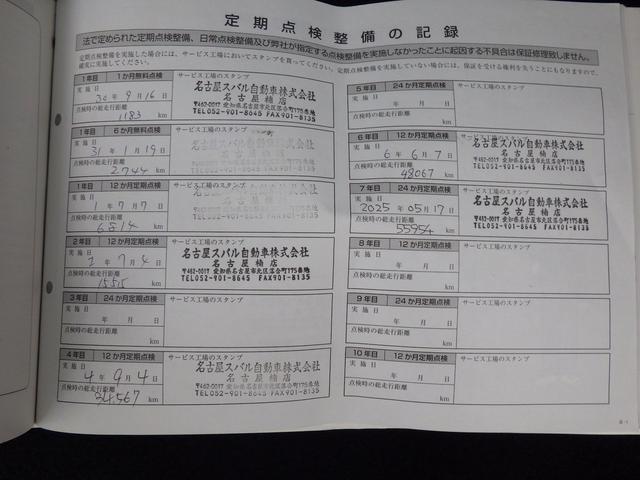 定期点検整備の記録
法で定められた定期点検整備、日常点検整備及び弊社が指定する点検整備を実施しなかったことに起因する不具合は保証修理致しません。
定期点検整備を実施した場合には、サービス工場においてスタンプを貰ってください。定期点検整備を実施していない場合には、保証を受ける権利を失うことにもなりますので、
確実に実施してください。
1年目 1か月無料点検 サービス工場のスタンプ
実施日
30年9月16日
点検時の総走行距離
1183 km
名古屋スバル自動車株式会社
名古屋楠店
〒462-0017 愛知県名古屋市北区落合町175番地
TEL052-901-8645 FAX901-8135
1年目 6か月無料点検 サービス工場のスタンプ
実施日
31年1月19日
点検時の総走行距離
2744 km
名古屋スバル自動車株式会社
名古屋楠店
〒462-0017 愛知県名古屋市北区落合町175番地
TEL052-901-8645 FAX901-8135
1年目 12か月定期点検 サービス工場のスタンプ
実施日
1年7月7日
点検時の総走行距離
6814 km
名古屋スバル自動車株式会社
名古屋楠店
〒462-0017 愛知県名古屋市北区落合町175番地
TEL052-901-8645 FAX901-8135
2年目 12か月定期点検 サービス工場のスタンプ
実施日
2年7月4日
点検時の総走行距離
15515 km
名古屋スバル自動車株式会社
名古屋楠店
〒462-0017 愛知県名古屋市北区落合町175番地
TEL052-901-8645 FAX901-8135
3年目 24か月定期点検 サービス工場のスタンプ
実施日
年 月 日
点検時の総走行距離
km
4年目 12か月定期点検 サービス工場のスタンプ
実施日
4年9月4日
点検時の総走行距離
34567 km
名古屋スバル自動車株式会社
名古屋楠店
〒462-0017 愛知県名古屋市北区落合町175番地
TEL052-901-8645 FAX901-8135
5年目 24か月定期点検 サービス工場のスタンプ
実施日
年 月 日
点検時の総走行距離
km
6年目 12か月定期点検 サービス工場のスタンプ
実施日
6年6月7日
点検時の総走行距離
48067 km
名古屋スバル自動車株式会社
名古屋楠店
〒462-0017 愛知県名古屋市北区落合町175番地
TEL052-901-8645 FAX901-8135
7年目 24か月定期点検 サービス工場のスタンプ
実施日
2025年05月17日
点検時の総走行距離
55954 km
名古屋スバル自動車株式会社
名古屋楠店
〒462-0017 愛知県名古屋市北区落合町175番地
TEL052-901-8645 FAX901-8135
8年目 12か月定期点検 サービス工場のスタンプ
実施日
年 月 日
点検時の総走行距離
km
9年目 24か月定期点検 サービス工場のスタンプ
実施日
年 月 日
点検時の総走行距離
km
10年目 12か月定期点検 サービス工場のスタンプ
実施日
年 月 日
点検時の総走行距離
km